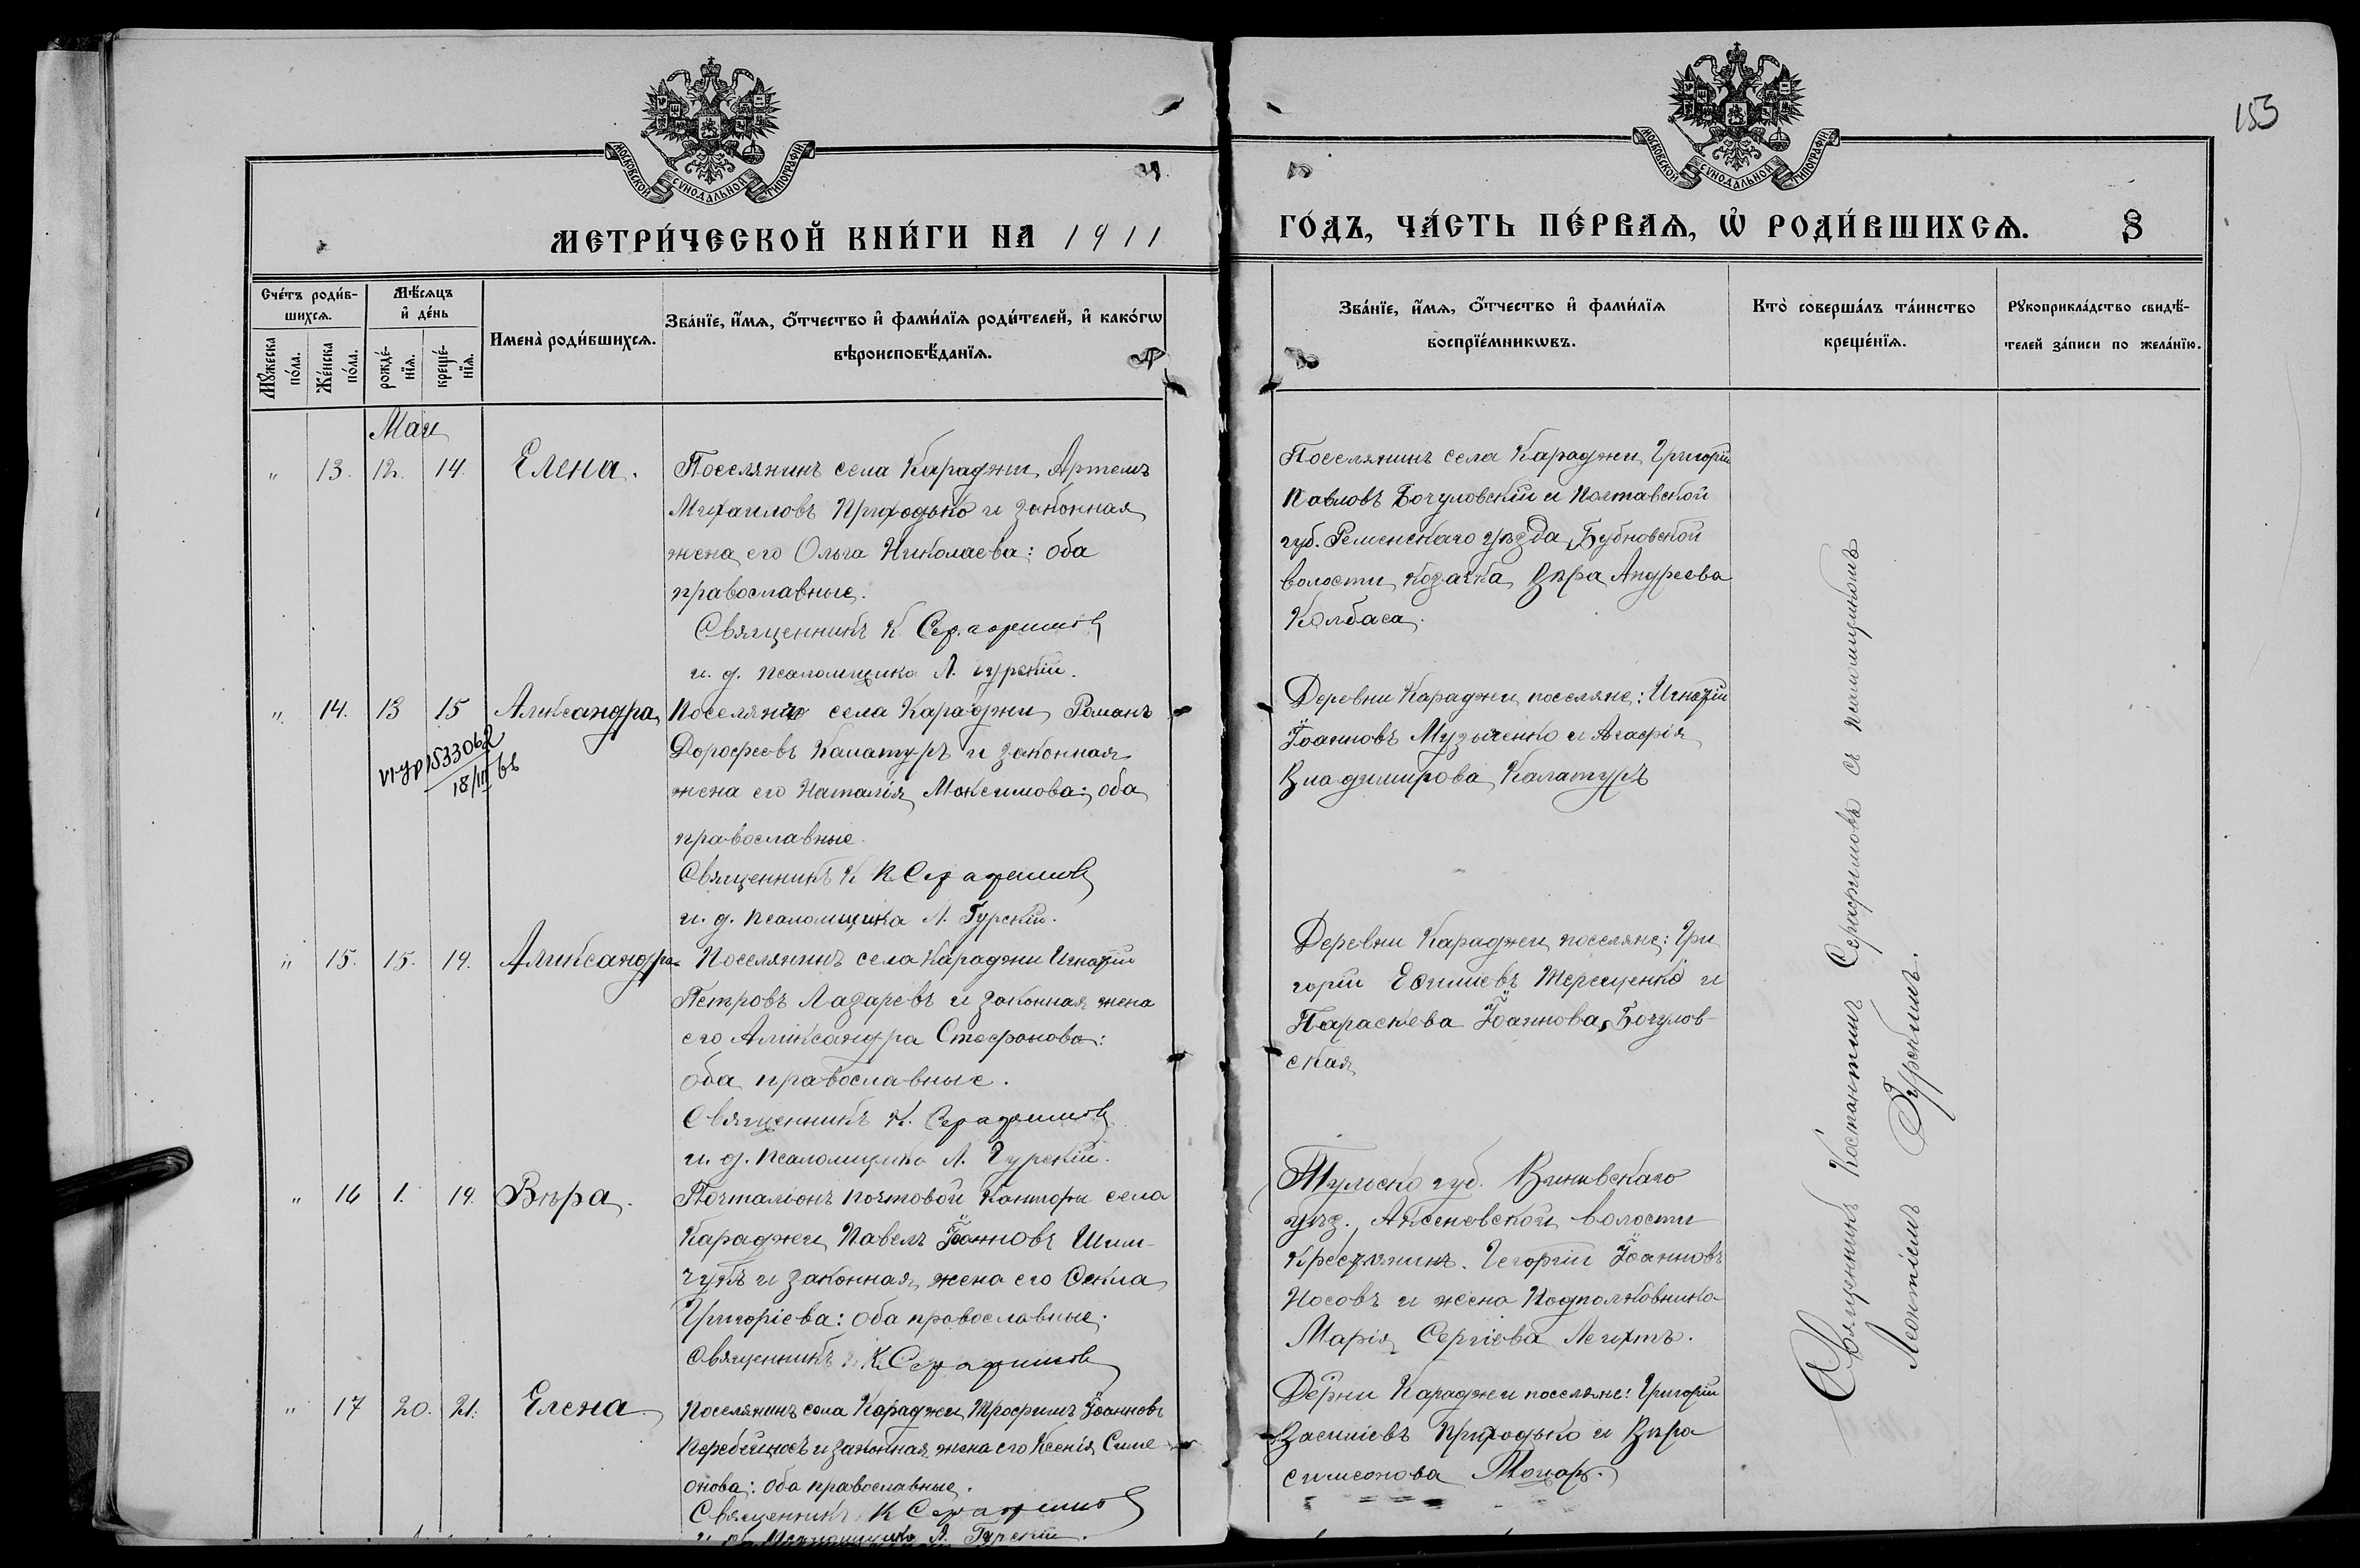 153
МОСКОВСКОЙ СѴНОДАЛЬНОЙ ТИПОГРАФІИ
МОСКОВСКОЙ СѴНОДАЛЬНОЙ ТИПОГРАФІИ
МЕТРИ́ЧЕСКОЙ КНИ́ГИ НА 1911
ГО́ДЪ, ЧА́СТЬ ПЕ́РВАѦ, Ѡ҆ РОДИ́ВШИХСѦ. 8
Сче́тъ роди́в-
шихсѧ.
Мꙋ́жеска
по́ла.
Же́нска
по́ла.
Мѣ́сѧцъ
и҆ де́нь
рожде́-
нїѧ.
креще́-
нїѧ.
Имена̀ роди́вшихсѧ.
Зва́нїе, и҆́мѧ, ѻ҆́тчество и҆ фами́лїѧ роди́телей, и҆ како́гѡ
вѣроисповѣ́данїѧ.
Зва́нїе, и҆́мѧ, ѻ҆́тчество и҆ фами́лїѧ
воспрїе́мникѡвъ.
Кто̀ соверша́лъ та́инство
креще́нїѧ.
Рꙋкоприкла́дство свидѣ́-
телей за́писи по жела́нїю.
Маи
" 13. 12. 14. Елена.
Поселянинъ села Караджи Артемъ
Михаиловъ Приходько и законная
жена его Ольга Николаева: оба
православные.
Священникъ К. Серафимов
и. д. псаломщика Л. Гурскій.
Поселянинъ села Караджи Григорій
Павловъ Бочуловскій и Полтавской
губ. Роменскаго уѣзда, Бубновской
волости козачка Вѣра Андреева
Колбаса.
" 14. 13 15 Александра
Поселянинъ села Караджи Романъ
Дорофеевъ Калатуръ и законная
жена его Наталія Максимова: оба
православные.
Священникъ К. Серафимов
и. д. псаломщика Л. Гурскій.
Деревни Караджи поселяне: Игнатій
Іоанновъ Музыченко и Агафія
Владимирова Калатуръ
18/III
" 15. 15. 19. Александра
Поселянинъ села Караджи Игнатій
Петровъ Лазаревъ и законная жена
его Александра Стефанова:
оба православные.
Священникъ К. Серафимов
и. д. псаломщика Л. Гурскій.
Деревни Караджи поселяне: Гри
горій Ефимовъ Терещенко и
Параскева Іоаннова Бочулов-
ская
" 16 1. 19. Вѣра.
Почталіонъ почтовой конторы села
Караджи Павелъ Іоанновъ Шим-
чукъ и законная жена его Фекла
Григоріева: оба православные.
Священникъ К. Серафимов
Тульско губ.
уѣз. Аксеновской волости
крестянинъ Георгій Іоанновъ
Носовъ и жена Подполковника
Марія Сергіева Лехтъ.
" 17 20. 21. Елена
Поселянинъ села Караджи Трофимъ Іоанновъ
Перебейносъ и законная жена его Ксенія Симе
онова: оба православные.
Священникъ К Серафимов
и. д. псаломщика Л. Гурскій.
Дерни Караджи поселяне: Григорій
Василіевъ Приходько и Вѣра
симеонова
Священникъ Константинъ Серафимовъ съ псаломщикомъ
Леонтіемъ Гурскимъ.